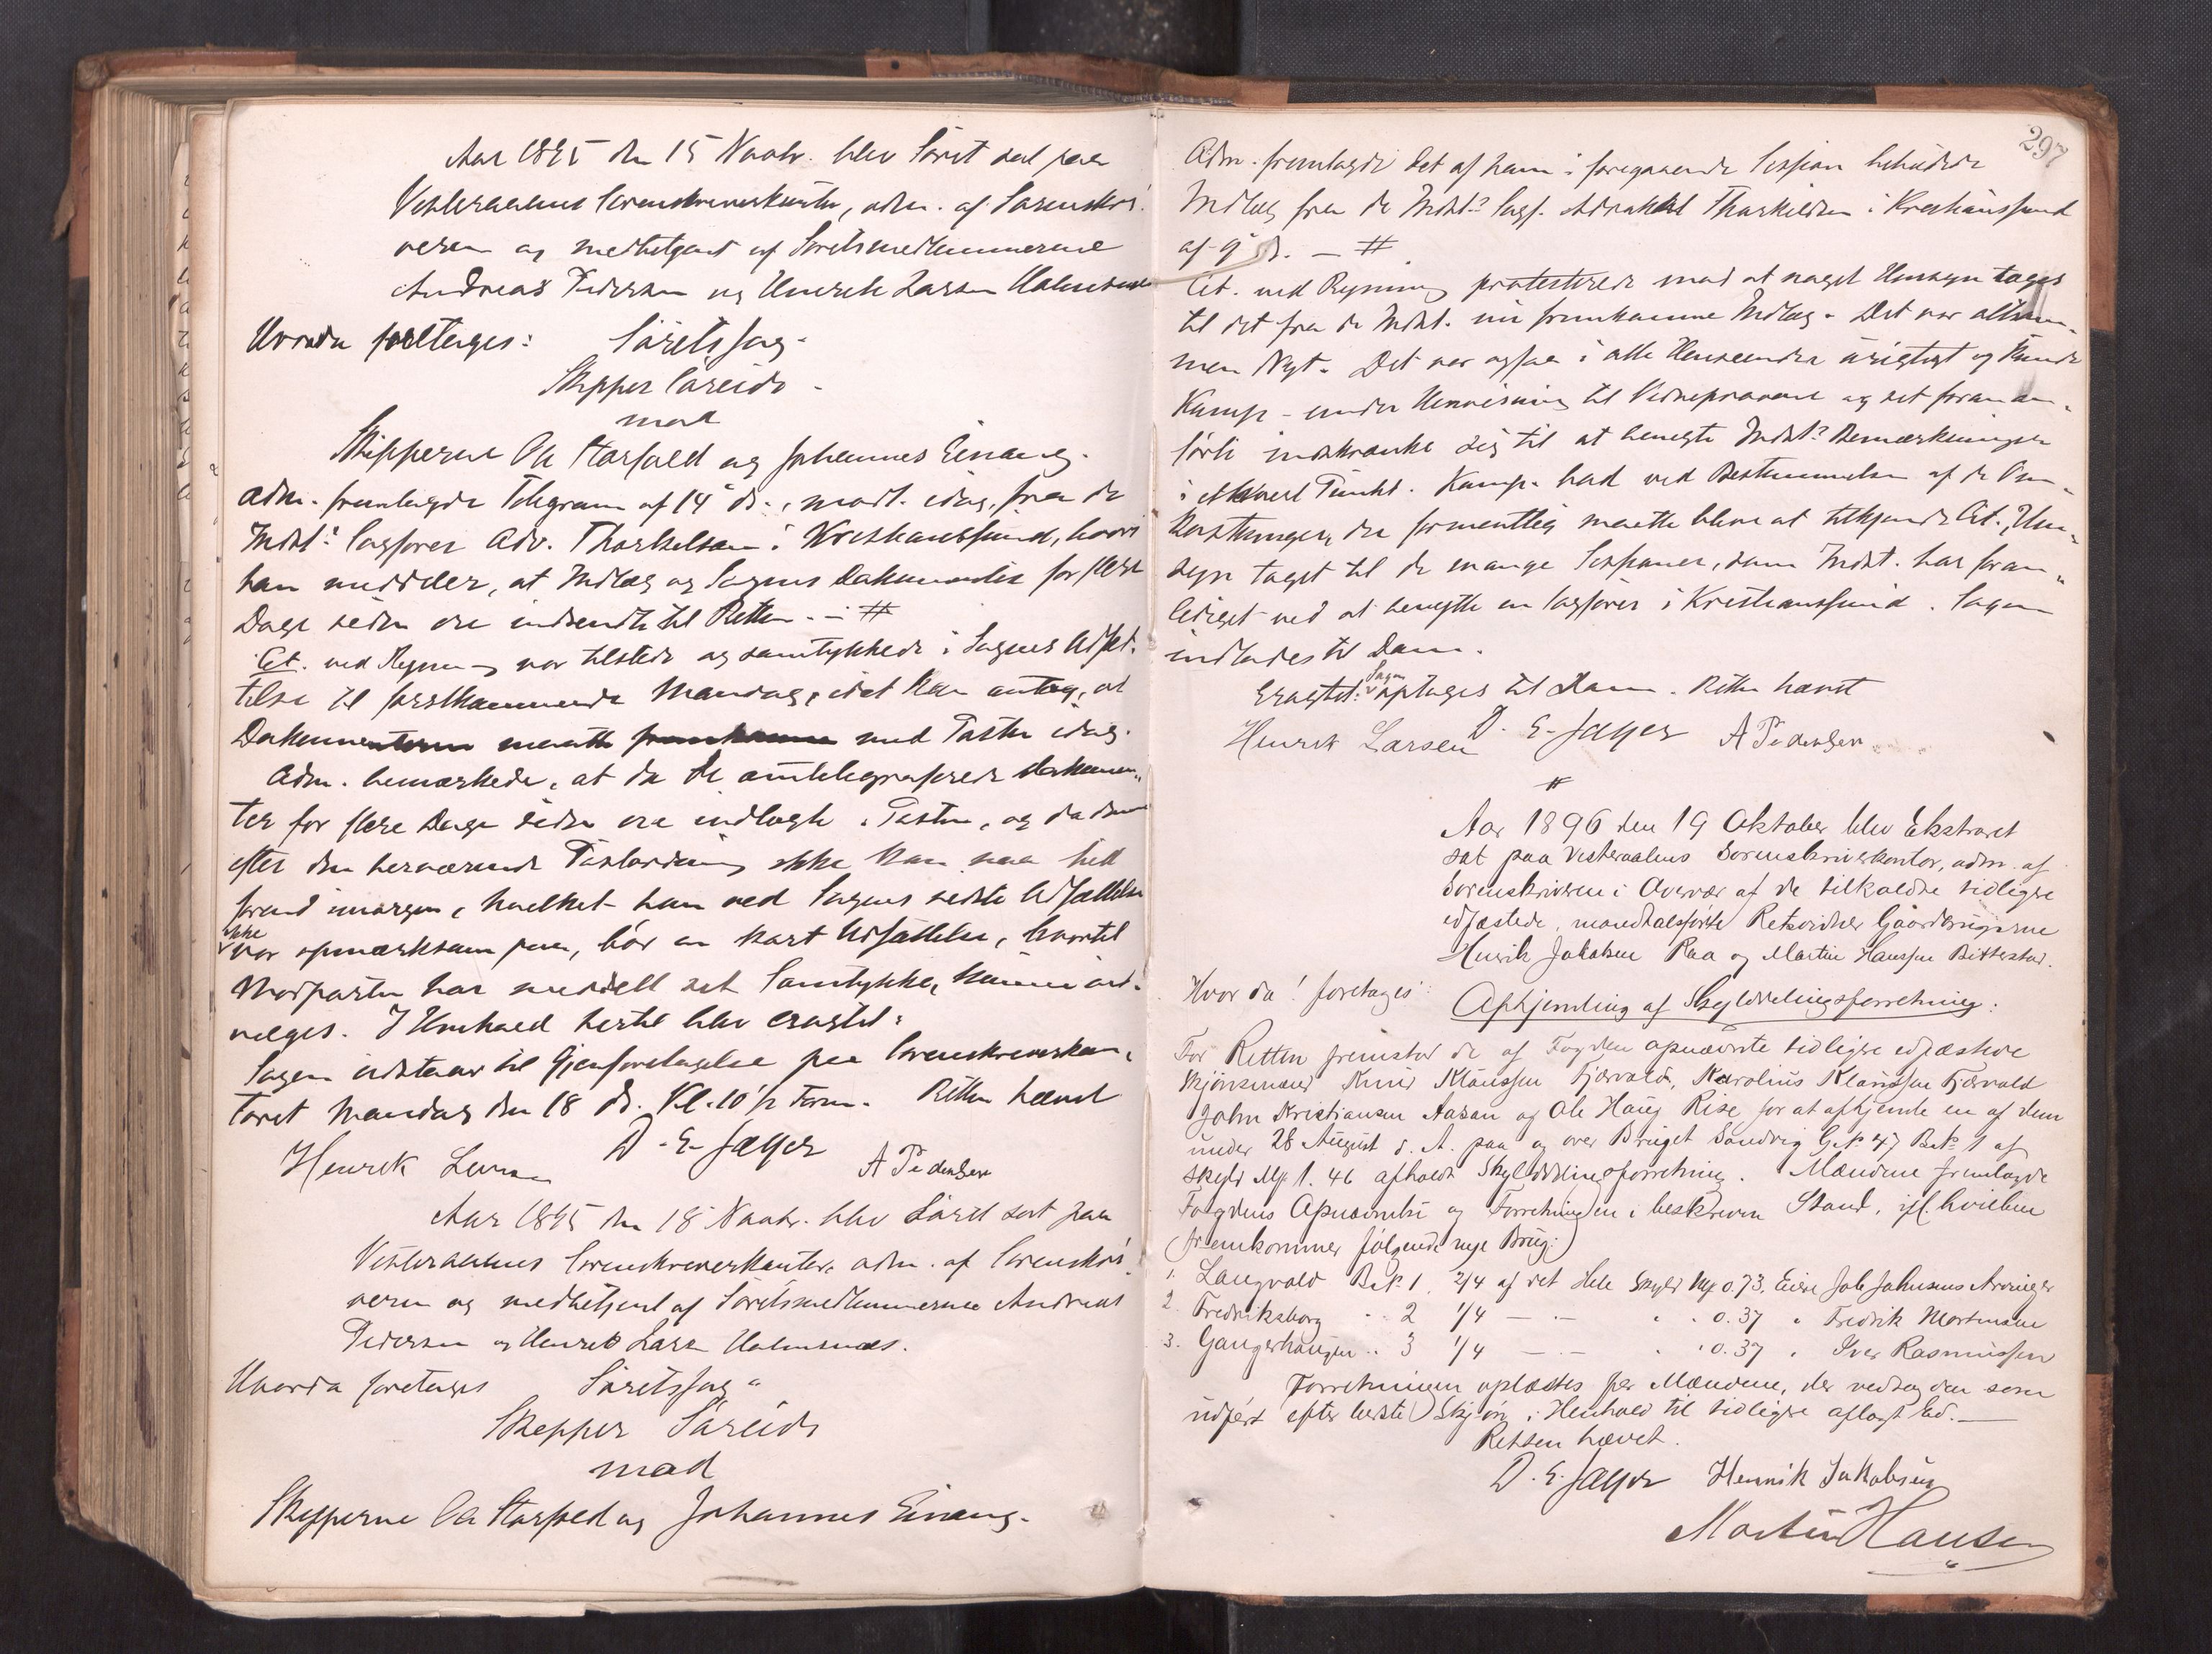 Aar 1895 den 15 Novbr. blev Söret sat paa
Vesteraalens Sorenskriverkontor, adm. af Sorenskri-
veren og medbetjent af Söretsmedlemmerne
Andreas Pedersen og Henrik Larsen Holmsnæs
Hvorda foretoges: Söretssag
Skipper Söreide
mod
Skipperne Ole Storfold og Johannes Einang.
Adm. fremlagde Telegram af 14de ds., modt. idag, fra de
Indst.s Sagfører Adv. Thorkelsen i Kristianssund, hvori
han meddeler, at Indlæg og Sagens Dokumenter for flere
Dage siden ere indsendte til Retten. - #
Cit. ved Rynning var tilstede og samtykkede i Sagens Udsæt-
telse til førstkommende Mandag, idet han antog, at
Dokumenterne maatte med Posten idag.
Adm. bemærkede, at da de omtelegraferede Dokumen-
ter for flere Dage siden ere indlagte i Posten, og da denne
efter den herværende Postordning ikke kan naa hid
førend imorgen, hvilket han ved Sagens sidste Udsættelse
ikke
var opmærksom paa, bör en kort Udsættelse, hvortil
Modparten har meddelt sit Samtykke, kunne ind-
rømges. I Henhold hertil blev eragtet:
Sagen udstaar til Gjenforetagelse paa Sorenskriverkon-
toret Mandag den 18 ds. Kl. 10 1/2 Form. Retten hævet
Henrik Larsen D. E. Jæger A Pedersen
Aar 1895 den 18 Novbr. blev Söret sat paa
Vesteraalens Sorenskriverkontor, adm. af Sorenskri-
veren og medbetjent af Söretsmedlemmerne Andreas
Pedersen og Henrik Larsen Holmsnæs.
Hvorda foretoges Söretssag
Skipper Söreide
mod
Skipperne Ole Storfold og Johannes Einang.
297
Adm. fremlagde det af ham i foregaaende Session bebudede
Indlæg fra de Indst.s Sagf. Advokat Thorkildsen i Kristianssund
af 9de ds. - #
Cit. ved Rynning protesterede mod at noget Hensyn toges
til det fra de Indst. nu fremkomne Indlæg. Det var altsam-
men Nyt. Det var ogsaa i alle Henseender urigtigt og kunde
Komp. - under Henvisning til Vidneprovene og det foran an-
førte indskrænke sig til at benegte Indst.s Bemærkninger
i ethvert Punkt. Komp. bad ved Bestemmelsen af de Om-
kostninger, der formentlig maatte blive at tilkjende Cit., Hen-
syn taget til de mange Sessioner, som Indst. har foran-
lediget ved at benytte en Sagfører i Kristianssund. Sagen
indlodes til Dom.
Sagen
Eragtet: optages til Dom. Retten hævet
Henrik Larsen D. E. Jæger A Pedersen
#
Aar 1896 den 19 Oktober blev Ekstraret
sat paa Vesteraalens Sorenskriverkontor, adm. af
Sorenskriveren i Overvær af de tilkaldte tidligere
edfæstede, mandtalsførte Retsvidner Gaardbrugerne
Henrik Jakobsen Raa og Martin Hanssen Bitterstad.
Hvor da! foretoges:
Afhjemling af Skylddelingsforretning:
For Retten fremstod de af Fogden opnævnte tidligere edfæstede
Skjönsmænd Knud Klaussen Fjærvold, Karolius Klaussen Fjærvold
John Kristiansen Aasan og Ole Haug Rise for at afhjemle en af dem
under 28 August d. A. paa og over Bruget Sandvig G.No 47 B.No 1 af
Skyld Mk 1. 46 afholdt Skylddelingsforretning. Mændene fremlagde
Fogdens Opnævnelse og Forretningen i beskreven Stand, ifl. hvilken
fremkommer følgende nye Brug:
1. Langvold B.No 1. 2/4 af det Hele Skyld Mk 0.73. Eiere Joh Johnsens Arvinger
2. Fredriksborg " 2 1/4 - " - " " 0.37 " Fredrik Mortensen
3. Gangerhaugen " 3 1/4 - " - " " 0.37 " Iver Rasmussen
Forretningen oplæstes for Mændene, der vedtog den som
udført efter bedste Skjön i Henhold til tidligere aflagt Ed. -
Retten hævet.
D. E. Jæger Henrik Jakobsen
Martin Hansen